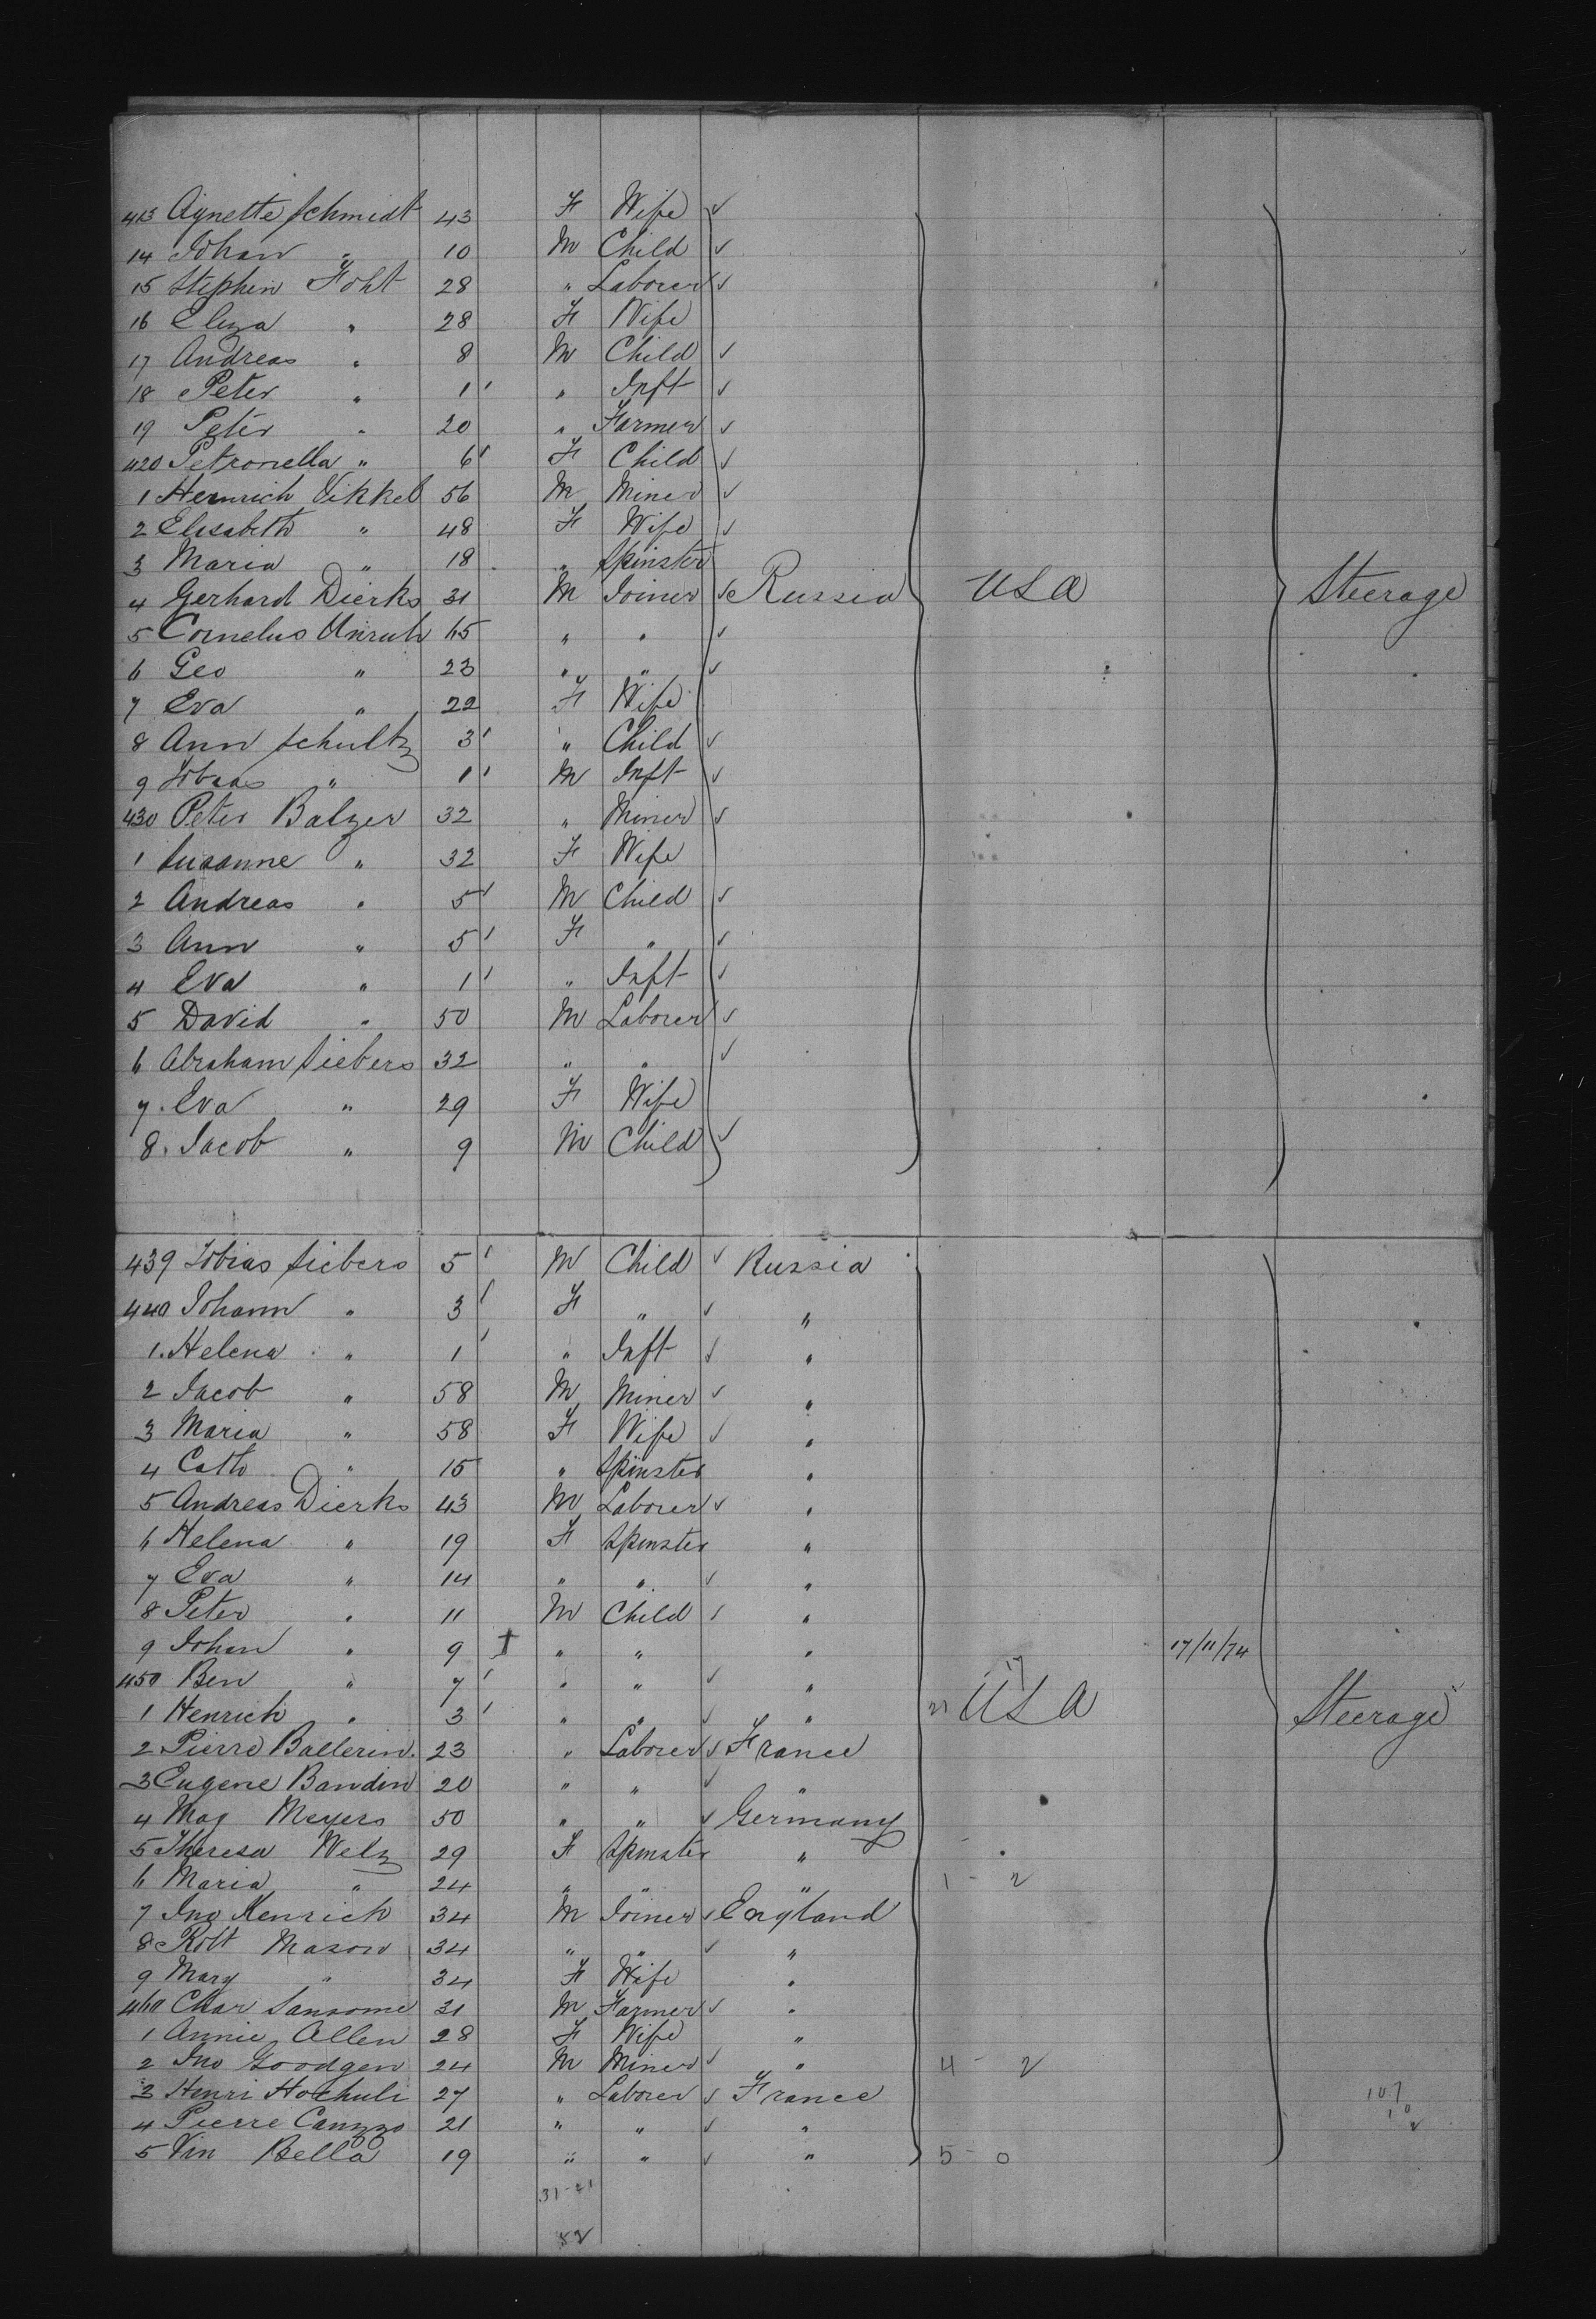 413 Agnette Schmidt 43 F Wife ✓
14 Johan " 10 M Child ✓
15 Stephen Foht 28 " Laborer ✓
16 Eliza " 28 F Wife
17 Andreas " 8 M Child ✓
18 Peter " 1 ' " Inft ✓
19 Peter " 20 " Farmer ✓
420 Petronella " 6 ' F Child ✓
1 Heinrich Vikkel 56 M Miner ✓
2 Elisabeth " 48 F Wife ✓
3 Maria " 18 " Spinster
4 Gerhard Dierks 31 M Joiner ✓ Russia USA Steerage
5 Cornelus Unruh 65 " " ✓
6 Geo " 23 " " ✓
7 Eva " 22 F Wife
8 Ann Schultz 3 ' " Child ✓
9 Tobias " 1 ' M Inft ✓
430 Peter Balzer 32 " Miner ✓
1 Susanne " 32 F Wife
2 Andreas " 5 ' M Child ✓
3 Ann " 5 ' F " ✓
4 Eva " 1 ' " Inft ✓
5 David " 50 M Laborer ✓
6 Abraham Siebers 32 " " ✓
7. Eva " 29 F Wife
8. Jacob " 9 M Child ✓
439 Tobias Siebers 5 ' M Child ✓ Russia
440 Johann " 3 ' F " ✓ "
1. Helena " 1 ' " Inft ✓ "
2 Jacob " 58 M Miner ✓ "
3 Maria " 58 F Wife ✓ "
4 Cath " 15 " Spinster "
5 Andreas Dierks 43 M Laborer ✓ "
6 Helena " 19 F Spinster "
7 Eva " 14 " " ✓ "
8 Peter " 11 M Child ✓ "
9 Johan " 9 † " " " 17/11/74
450 Ben " 7 ' " " ✓ " 17
1 Henrich " 3 ' " " ✓ " 21 USA Steerage
2 Pierre Ballerin. 23 " Laborer ✓ France
3 Eugene Bandin 20 " " ✓ "
4 Mag Meyers 50 " " ✓ Germany
5 Theresa Welz 29 F Spinster "
6 Maria " 24 " " " 1 - 2
7 Jno Kenrich 34 M Joiner ✓ England
8 Robt Mason 34 " " ✓ "
9 Mary " 34 F Wife "
460 Char Sansome 31 M Farmer ✓ "
1 Annie Allen 28 F Wife "
2 Jno Goodgen 24 M Miner ✓ " 4 - 2
3 Henri Hochuli 27 " Laborer ✓ France 107
4 Pierre Canzzo 21 " " ✓ "
5 Vin Bella 19 " " ✓ " 5 - 0
31-21
52